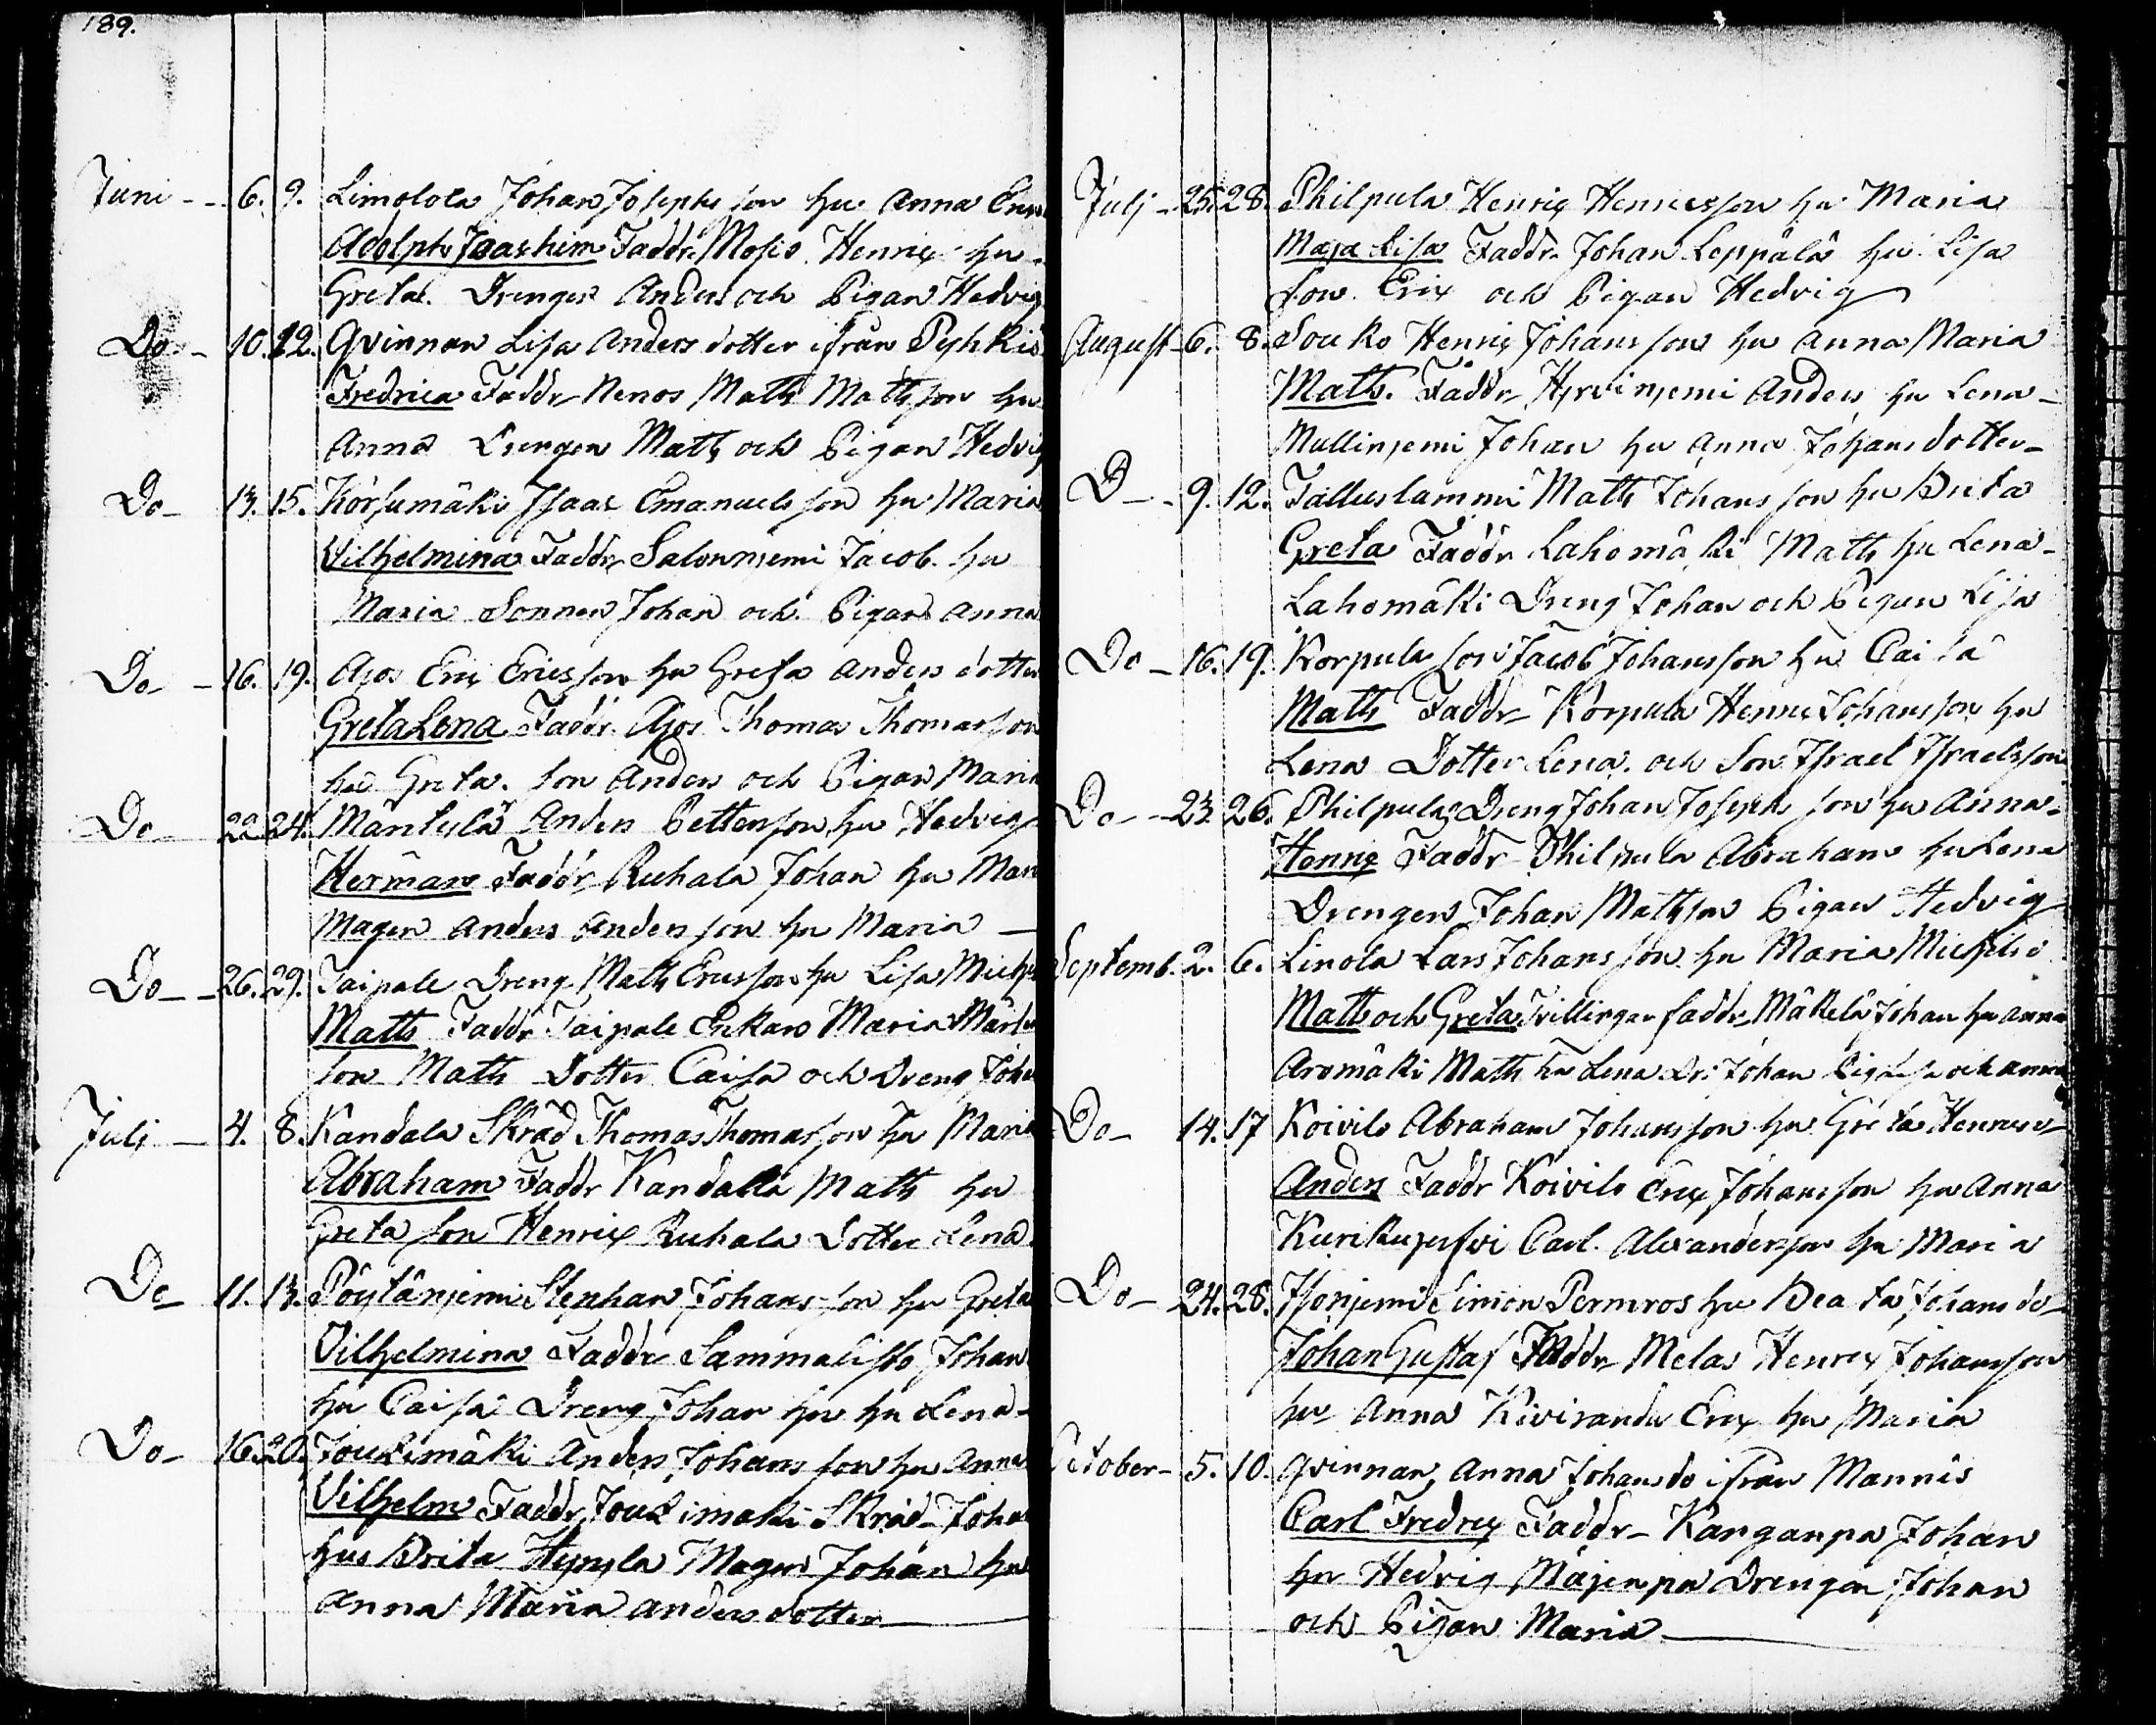 189.
Juni - - 6. 9. Limolola Johan Josephs son hu Anna Ers
Adolph Joachim Faddr. Mosis Henrix hu
Greta. Drengen Anders och Pigan Hedvig
Do - 10. 12. Qvinnan Lisa Anders dotter ifrån Pyhkiö
Fredrica Faddr Nenos Matts Matts son hu
Anna Drengen Matts och Pigan Hedvig
Do - 13. 15. Korsumäki Isaac Emanuels son hu Maria
Vilhelmina Faddr Salonniemi Jacob. hu
Maria Sonnen Johan och Pigan Anna
Do - 16. 19. Ajos Erix Ericsson hu Greta Anders dotter
Greta Lena Faddr. Ajos Thomas Thomasson
hu Greta. son Anders och Pigan Maria
Do - 22 24. Mäntylä Anders Pettersson hu Hedvig
Herman Faddr Ruhala Johan hu Mari
Magen Anders Andersson hu Maria —
Do - - 26. 29. Taipale Dreng Matts Ericsson hu Lisa Michels
Matts Faddr Taipale Enkan Maria Märtens
son Matts Dotter Caisa och Dreng Joha
Julj - 4. 8. Kandala Skräd Thomas Thomasson hu Maria
Abraham Faddr Kandala Matts hu
Greta son Henrix Ruhala Dotter Lena.
Do - 11. 13. Pöytäniemi Stephan Johans son hu Greta
Vilhelmina Faddr Sammalisto Johan
hu Caisa Dreng Johan hu hu Lena -
Do - 16. 20. Joukimäki Anders Johans son hu Anna
Vilhelm Faddr, Joukimäki Skräd - Joha
hus Brita Hyryla Magen Johan hu
Anna Maria Anders dotter
Julj - 25. 28. Philpula Henrix Henricsson hu Maria
Maja Lisa Faddr. Johan Leppälä hu Lisa
son Erix och Pigan Hedvig
August - 6. 8. Souko Henrix Johans son hu Anna Maria
Matts. Faddr Hirviniemi Anders hu Lena -
Mulliniemi Johan hu Anna Johans dotter -
D - - 9. 12. Talluslammi Matts Johans son hu Brita
Greta Faddr Lahomäki Matts hu Lena -
Lahomäki Dreng Johan och Pigan Lisa
Do - 16. 19. Korpula son Jacob Johansson hu Caisa
Matts Faddr - Korpula Henrix Johansson hu
Lena Dotter Lena. och Son Israel Israelsson
Do - - 23. 26. Philpula Dreng Johan Josephs son hu Anna -
Henrix Faddr - Philpula Abraham hu Lena
Drengen Johan Mattsson Pigan Hedvig
Septemb. 2. 6. Linola Lars Johans son hu Maria Michels
Matts och Greta Tvillingar faddr. Mäkelä Johan hu Anna
Aromäki Matts hu Lena Dr: Johan Pig Lisa och Anna
Do - 14. 17 Koivilo Abraham Johansson hu Greta Henrics
Anders Faddr Koivilo Erix Johansson hu Anna
Carl Alexandersson hu Maria
Do - 24. 28. Simon Permros hu Beata Johans do
Johan Gustaf Faddr Melas Henrix Johansson
hu Anna Kiviranda Erix hu Maria
October - 5. 10. Qvinnan, Anna Johans do ifrån Mannis
Carl Fredrix Faddr - Kanganpä Johan
hu Hedvig Mäjenpä Drengen Johan
och Pigan Maria